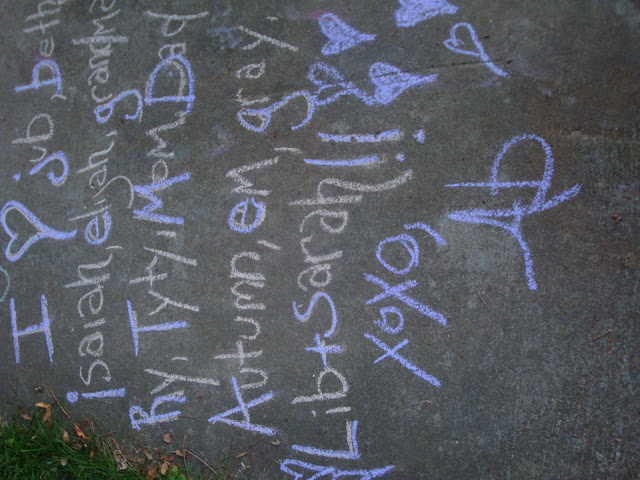 I ♡ jb, beth
isaiah, elijah, grandma
Ry, Tyty, Mom, Dad
Autumn, em, gray,
Lib + Sarah!!!
xoxo,